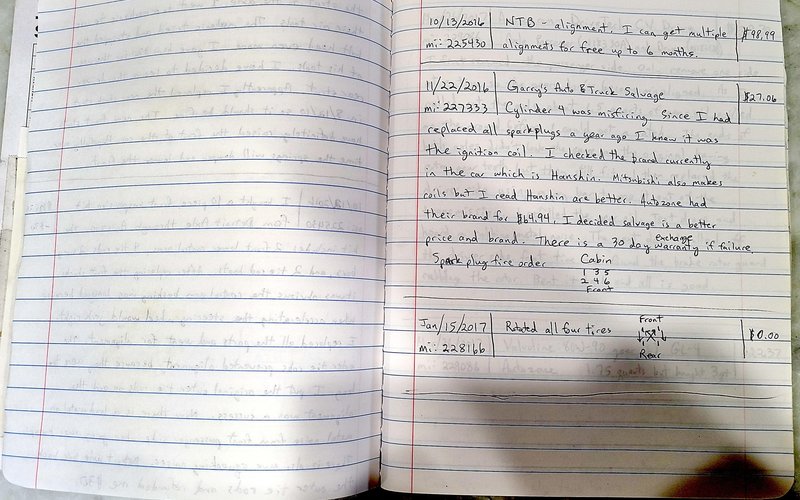 10/13/2016 NTB - alignment. I can get multiple $98.99
mi: 225430 alignments for free up to 6 months.
11/22/2016 Garry's Auto & Truck Salvage $27.06
mi: 227333 Cylinder 4 was misfiring. Since I had
replaced all sparkplugs a year ago I knew it was
the ignition coil. I checked the brand currently
in the car which is Hanshin. Mitsubishi also makes
coils but I read Hanshin are better. Autozone had
their brand for $64.94. I decided salvage is a better
price and brand. There is a 30 day exchange warranty if failure.
Spark plug fire order Cabin
1 3 5
2 4 6
Front
Jan/15/2017 Rotated all four tires Front $0.00
mi: 228166 Rear